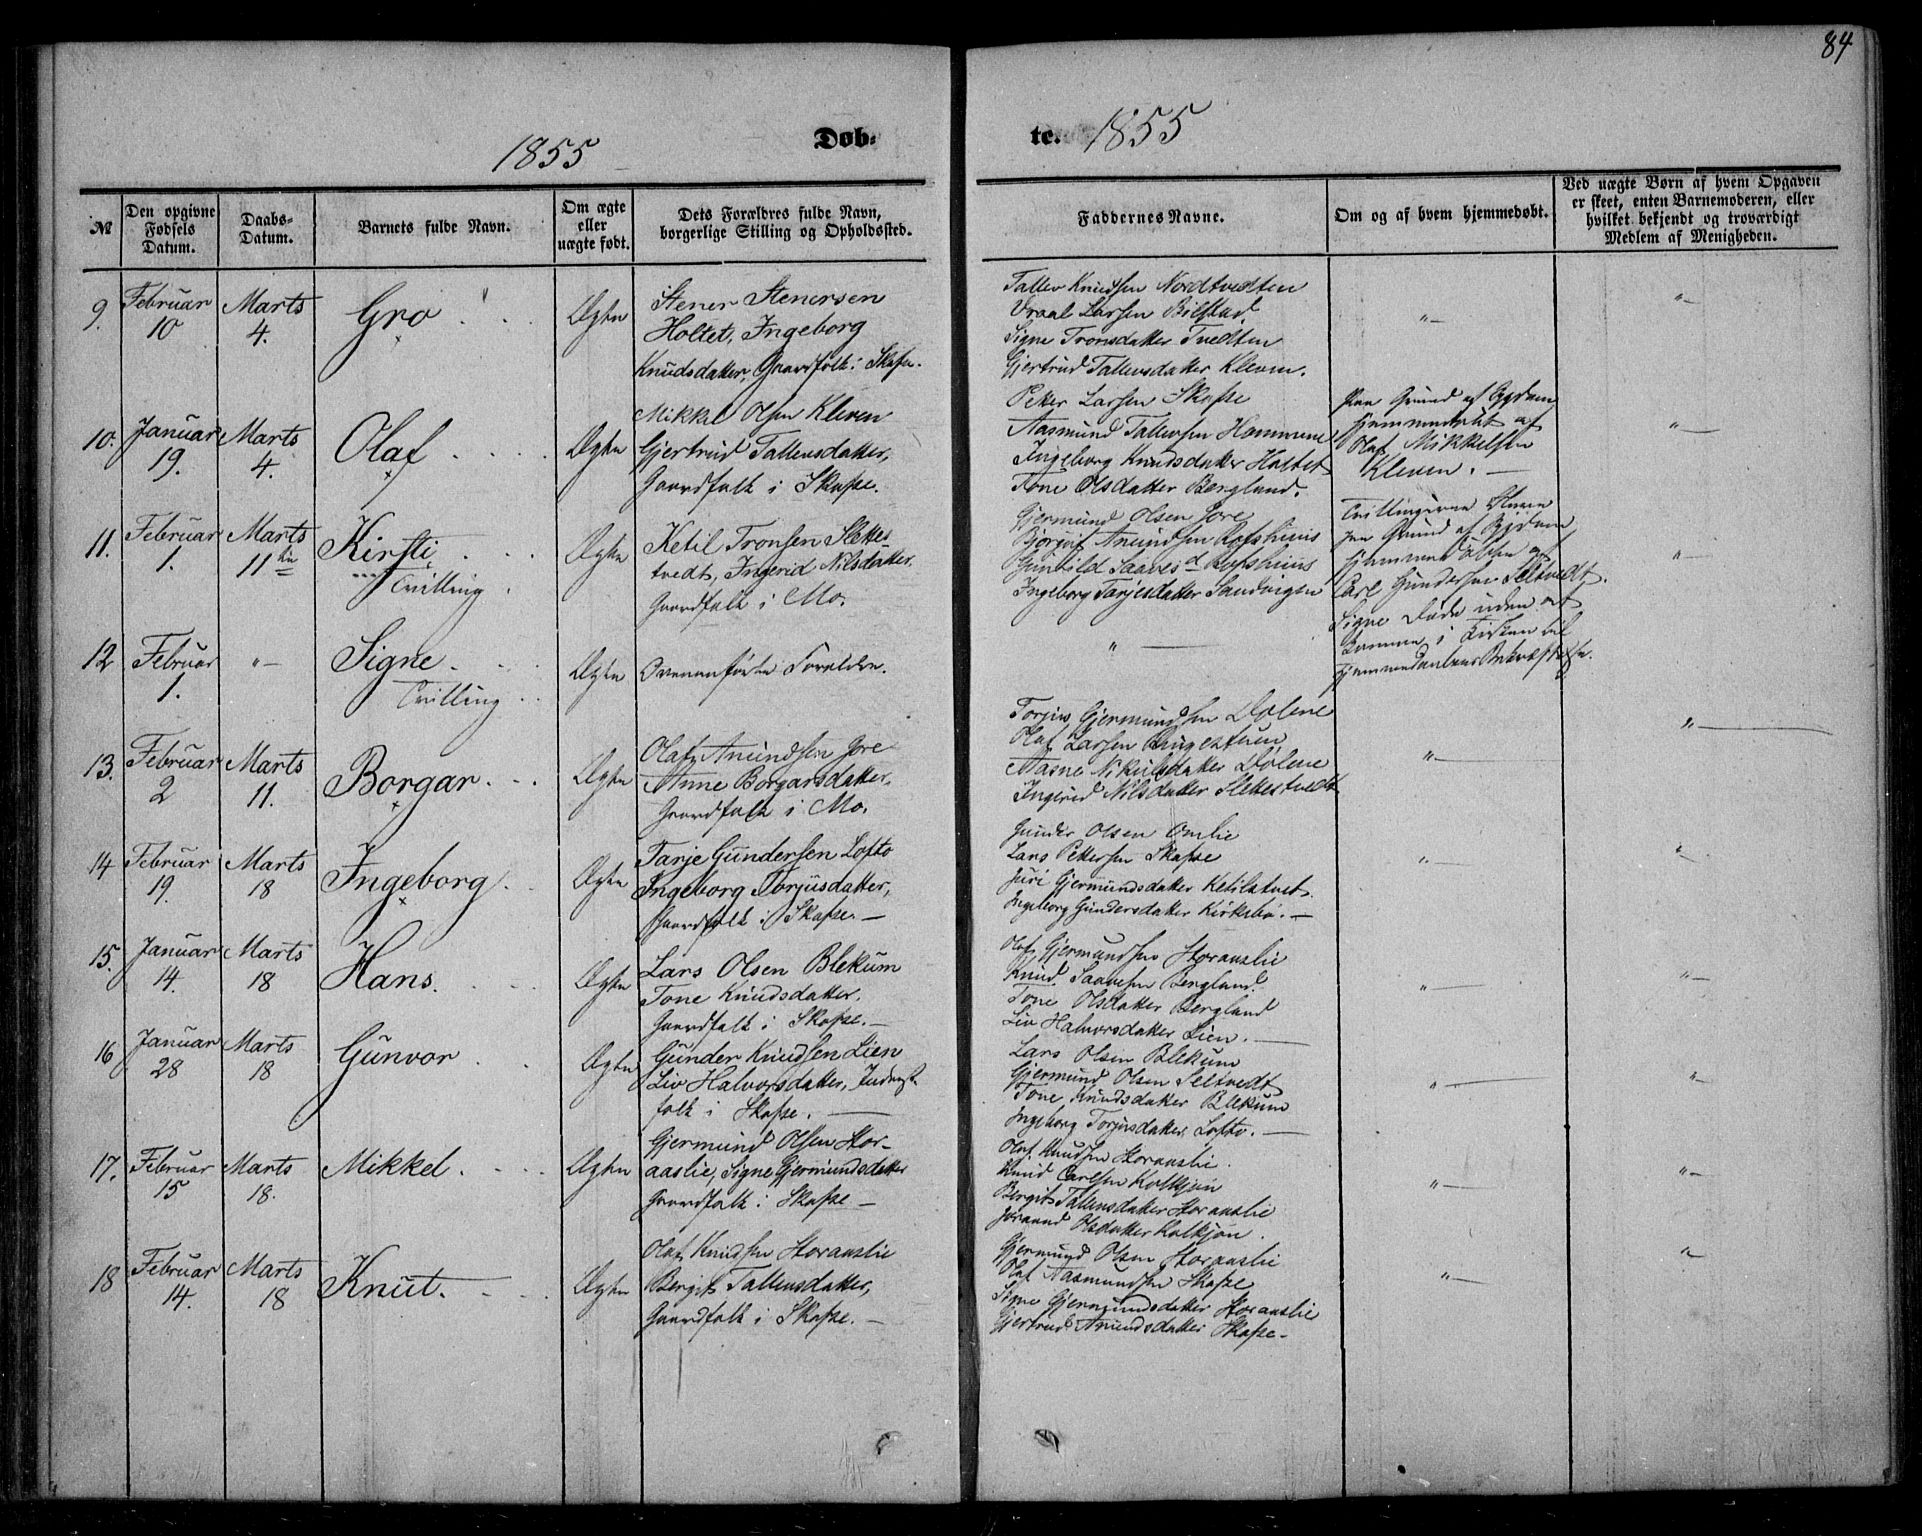 84
1855
Døb-
te.
1855
№
Den opgivne
Fødsels
Datum.
Daabs-
Datum.
Barnets fulde Navn.
Om ægte
eller
uægte født.
Dets Forældres fulde Navn,
borgerlige Stilling og Opholdssted.
Faddernes Navne.
Om og af hvem hjemmedøbt.
Ved uægte Børn af hvem Opgaven
er skeet, enten Barnemoderen, eller
hvilket bekjendt og troværdigt
Medlem af Menigheden.
9. Februar 10
Marts 4.
Gro
Ægte
Stener Stenersen
Holtet, Ingeborg
Knudsdatter, Gaardfolk i Skafse.
Tallev Knudsen Nordtvedten
Vraal Larsen Bilstad.
Signe Tronsdatter Tvedten
Gjertrud Tallevsdatter Kleven.
"
"
10. Januar 19.
Marts 4.
Olaf
Ægte
Mikkel Olsen Kleven
Gjertrud Tallevsdatter,
Gaardfolk i Skafse.
Peter Larsen Skafse
Aasmund Tallevsen Hommene
Ingeborg Knudsdatter Holtet
Tone Olsdatter Berglund.
paa Grund af Sygdom
hjemmedøbt af
Olaf Mikkelsen
Kleven.
"
11. Februar 1.
Marts 11te
Kirsti
Tvilling
Ægte
Ketil Tronsen Slettes
tvedt, Ingerid Nilsdatter.
Gaardfolk i Mo.
Gjermund Olsen Jore
Bjørgvif Anundsen Rofshuus
Gunvild Saavesd Rofshuus
Ingeborg Tarjesdatter Sandvigen
Tvillingerne bleve
paa Grund af Sygdom
hjemmedøbte af
Carl Gundersen Seltvedt.
Signe døde uden at
komme i Kirken til
Hjemmedaabens Bekræftelse.
"
12 Februar 1.
"
Signe
Tvilling
Ægte
Ovenanførte Forældre.
"
13. Februar 2
Marts 11.
Borgar
Ægte
Olaf Anundsen Jore
Anne Borgarsdatter,
Gaardfolk i Mo.
Torjus Gjermundsen Dølene
Olaf Larsen Ringestuen
Aasne Nikulsdatter Dølene
Ingerid Nilsdatter Slettestvedt
"
"
14 Februar 19.
Marts 18
Ingeborg
Ægte
Tarje Gundersen Lofto
Ingeborg Torjusdatter,
Gaardfolk i Skafse.
Gunder Olsen Omlie
Lars Pettersen Skafse
Juri Gjermundsdatter Ketilstvet
Ingeborg Gundersdatter Kirkebø.
"
"
15. Januar 14.
Marts 18
Hans.
Ægte
Lars Olsen Blekum
Tone Knudsdatter.
Gaardfolk i Skafse.
Olaf Gjermundsen Storaaslie
Knud Saavesen Bergland
Tone Olsdatter Bergland
Liv Halvorsdatter Lien.
"
"
16 Januar 28
Marts 18
Gunvor
Ægte
Gunder Knudsen Lien
Liv Halvorsdatter, Inderst-
folk i Skafse.
Lars Olsen Blekum
Gjermund Olsen Seltvedt
Tone Knudsdatter Blekum
Ingeborg Torjusdatter, Lofto.
"
"
17. Februar 15
Marts 18.
Mikkel
Ægte
Gjermund Olsen Stor-
aaslie, Signe Gjermundsdatter
Gaardfolk i Skafse
Olaf Knudsen Storaaslie.
Knud Carlsen Kolkjøn
Bergit Tallevsdatter Storaaslie
Jorand Olsdatter Kolkjøn.
"
"
18 Februar 14.
Marts 18
Knut.
Ægte
Olaf Knudsen Storaaslie
Bergit Tallevsdatter,
Gaardfolk i Skafse.
Gjermund Olsen Storaaslie
Olaf Aasmundsen Skafse
Signe Gjermundsdatter Storaaslie
Gjertrud Anundsdatter Skafse
"
"